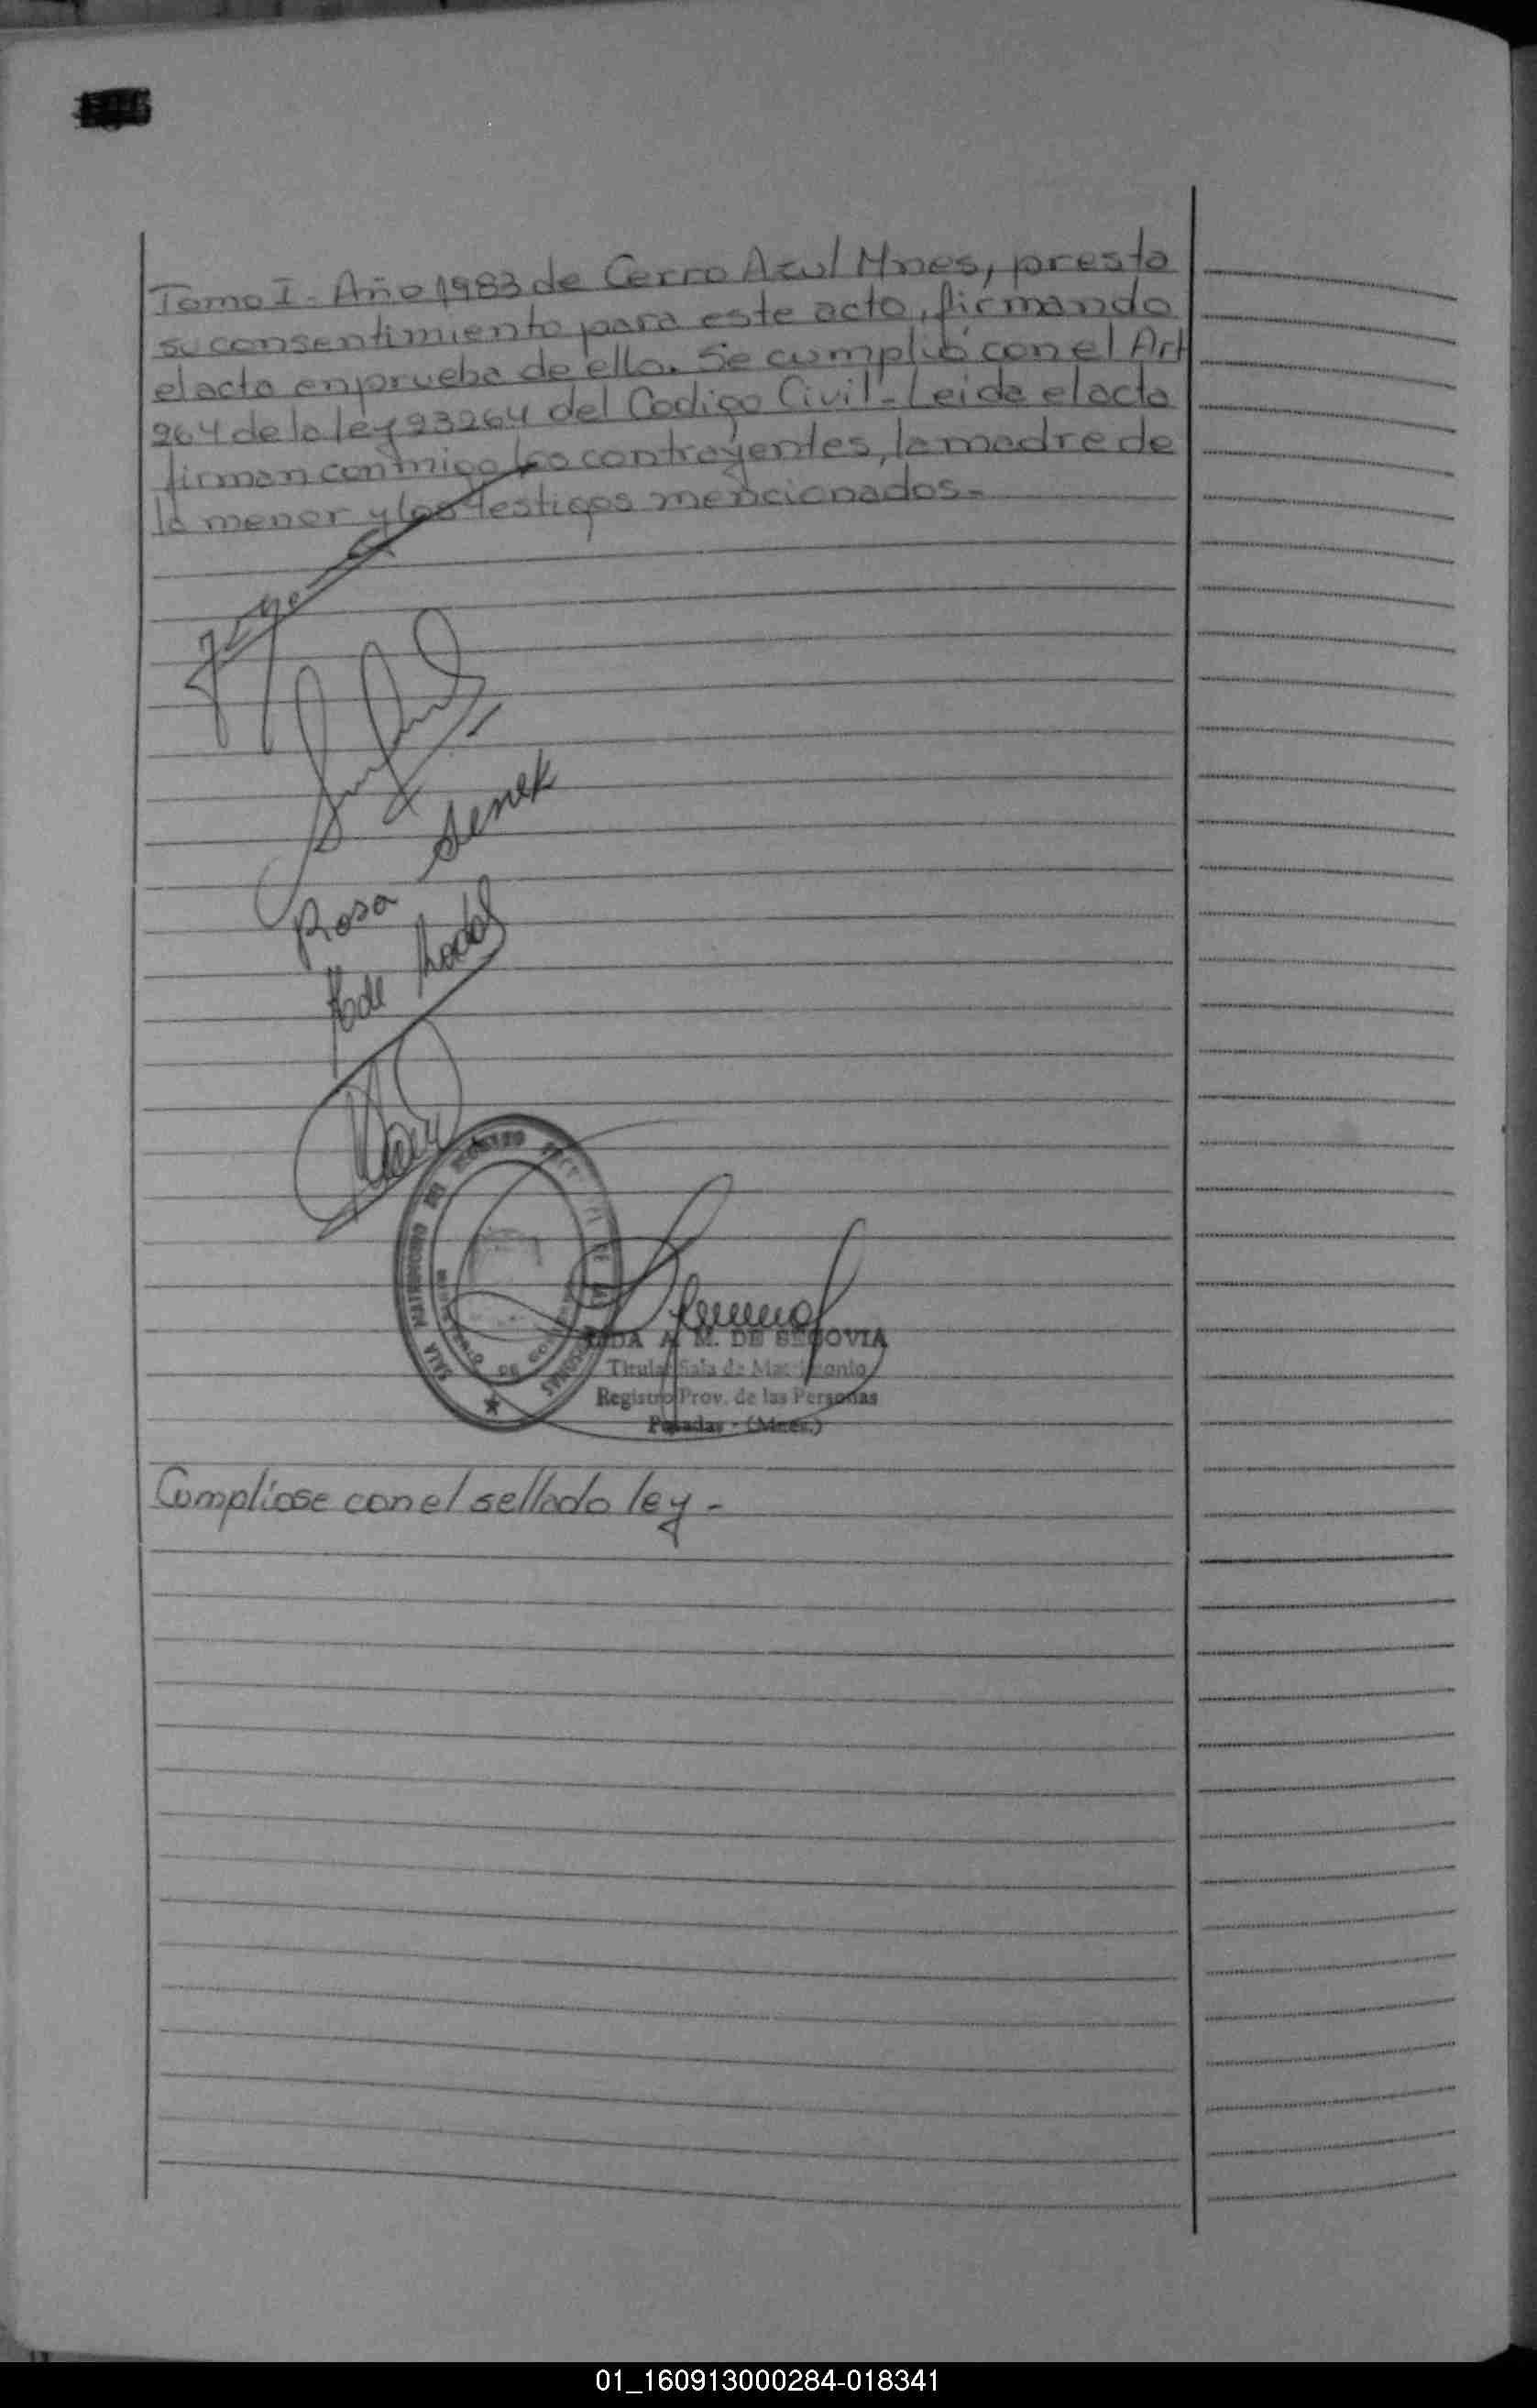 Tomo I - Año 1983 de Cerro Azul Mnes, presta
su consentimiento para este acto, firmando
el acta en prueba de ello. Se cumplió con el Art
264 de la ley 23264 del Codigo Civil - Leida el acta
firman conmigo los contrayentes, la madre de
la menor y los testigos mencionados.-
Rosa Senek
A. M. DE SEGOVIA
Titular Sala de Matrimonio
Registro Prov. de las Personas
Posadas - (Mnes.)
SALA MATRIMONIO DEL REGISTRO
Compliose con el sellado ley -
01_160913000284-018341